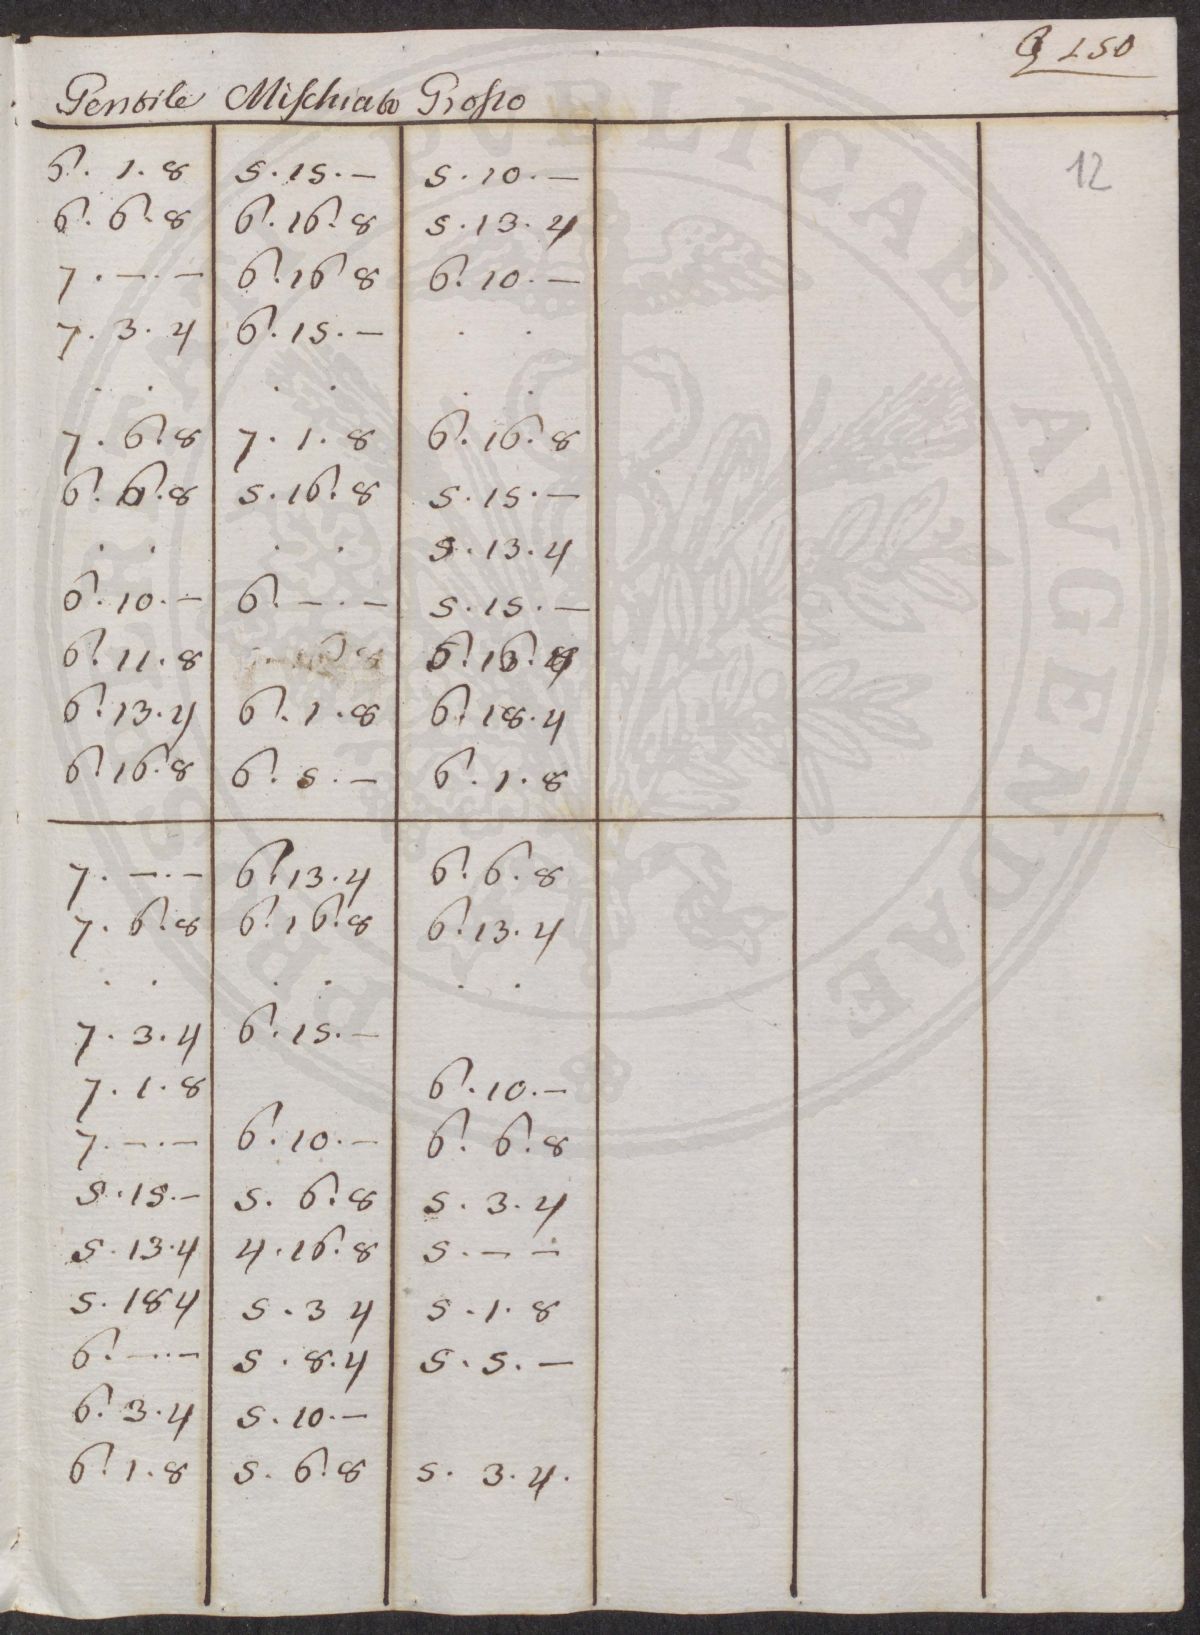 ₢ 150
Gentile Mischiato Grosso
12
6. 1. 8 5. 15. — 5. 10. —
6. 6. 8 6. 16. 8 5. 13. 4
7. —. — 6. 16 8 6. 10. —
7. 3. 4 6. 15. — . .
. . . . . .
7. 6. 8 7. 1. 8 6. 16. 8
6. 6. 8 5. 16. 8 5. 15. —
. . . . 5. 13. 4
6. 10. — 6. —. — 5. 15. —
6. 11. 8
6. 13. 4 6. 1. 8 6. 18. 4
6. 16. 8 6. 5. — 6. 1. 8
7. —. — 6. 13. 4 6. 6. 8
7. 6. 8 6. 16. 8 6. 13. 4
. . . . . .
7. 3. 4 6. 15. —
7. 1. 8 6. 10. —
7. —. — 6. 10. — 6. 6. 8
5. 15. — 5. 6. 8 5. 3. 4
5. 13. 4 4. 16. 8 5. — —
5. 18 4 5. 3 4 5. 1. 8
6. —. — 5. 8. 4 5. 5. —
6. 3. 4 5. 10. —
6. 1. 8 5. 6. 8 5. 3. 4.
PVBLICAE AVGENDAE